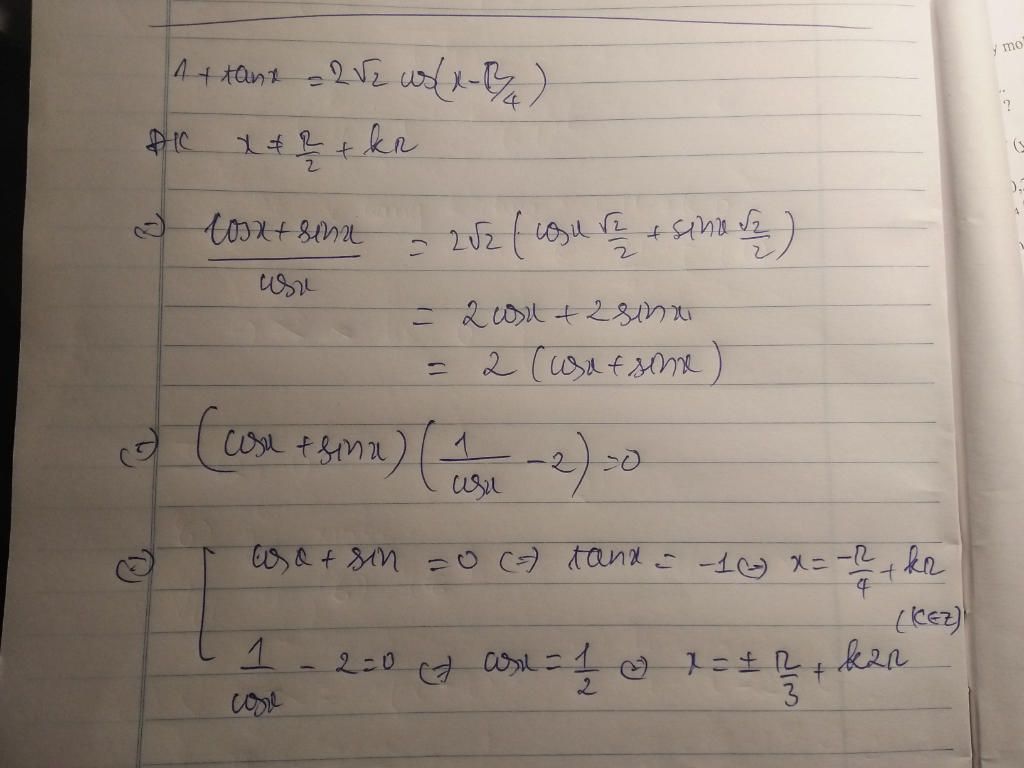 1 + tanx = 2√2 cos(x - π/4)
ĐK x ≠ π/2 + kπ
⇔ (cosx + sinx)/cosx = 2√2 (cosx √2/2 + sinx √2/2)
= 2cosx + 2sinx
= 2 (cosx + sinx)
⇔ (cosx + sinx) (1/cosx - 2) = 0
⇔ [ cosx + sin = 0 ⇔ tanx = -1 ⇔ x = -π/4 + kπ
(k∈Z)
1/cosx - 2 = 0 ⇔ cosx = 1/2 ⇔ x = ± π/3 + k2π